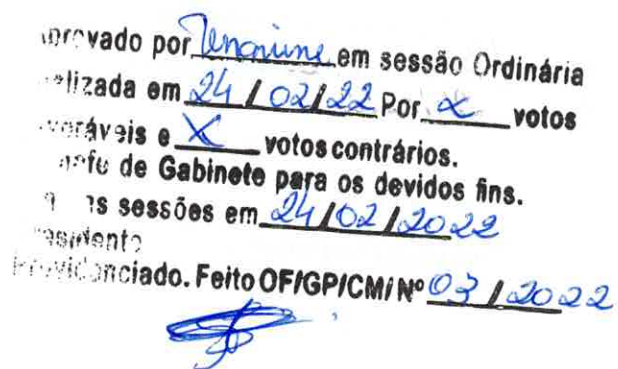 provado por Unanime em sessão Ordinária
alizada em 24/02/22 Por X votos
voráveis e X votos contrários.
efe de Gabinete para os devidos fins.
s sessões em 24/02/2022
residente
Providenciado. Feito OF/GP/CM/Nº 03/2022